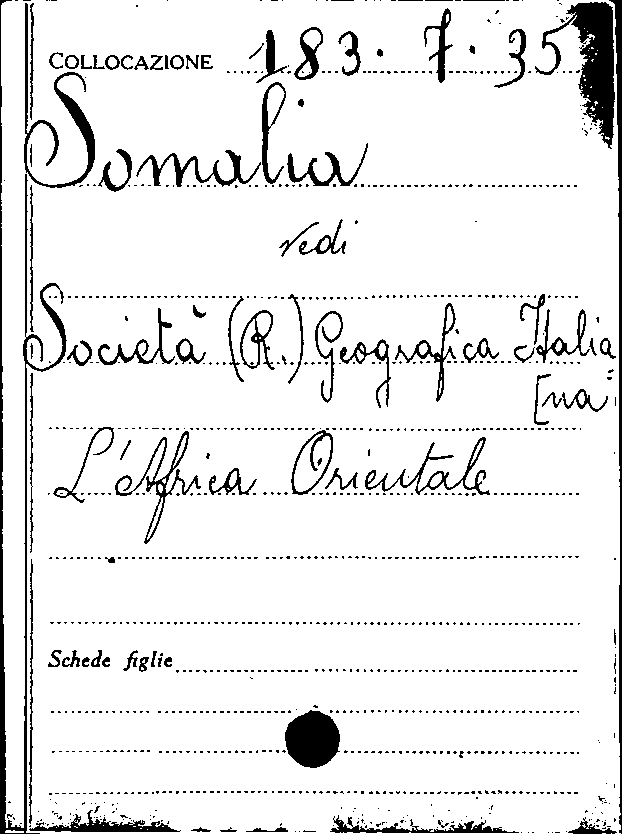 COLLOCAZIONE 183. 7. 35
Somalia
vedi
Società (R.) Geografica Italia=
[na
L'Africa Orientale
Schede figlie